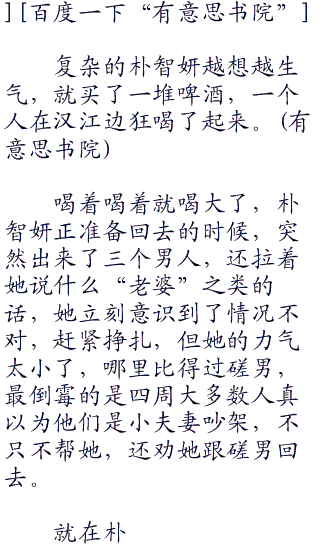 ] [百度一下“有意思书院”]
复杂的朴智妍越想越生
气，就买了一堆啤酒，一个
人在汉江边狂喝了起来。(有
意思书院)
喝着喝着就喝大了，朴
智妍正准备回去的时候，突
然出来了三个男人，还拉着
她说什么“老婆”之类的
话，她立刻意识到了情况不
对，赶紧挣扎，但她的力气
太小了，哪里比得过磋男，
最倒霉的是四周大多数人真
以为他们是小夫妻吵架，不
只不帮她，还劝她跟磋男回
去。
就在朴